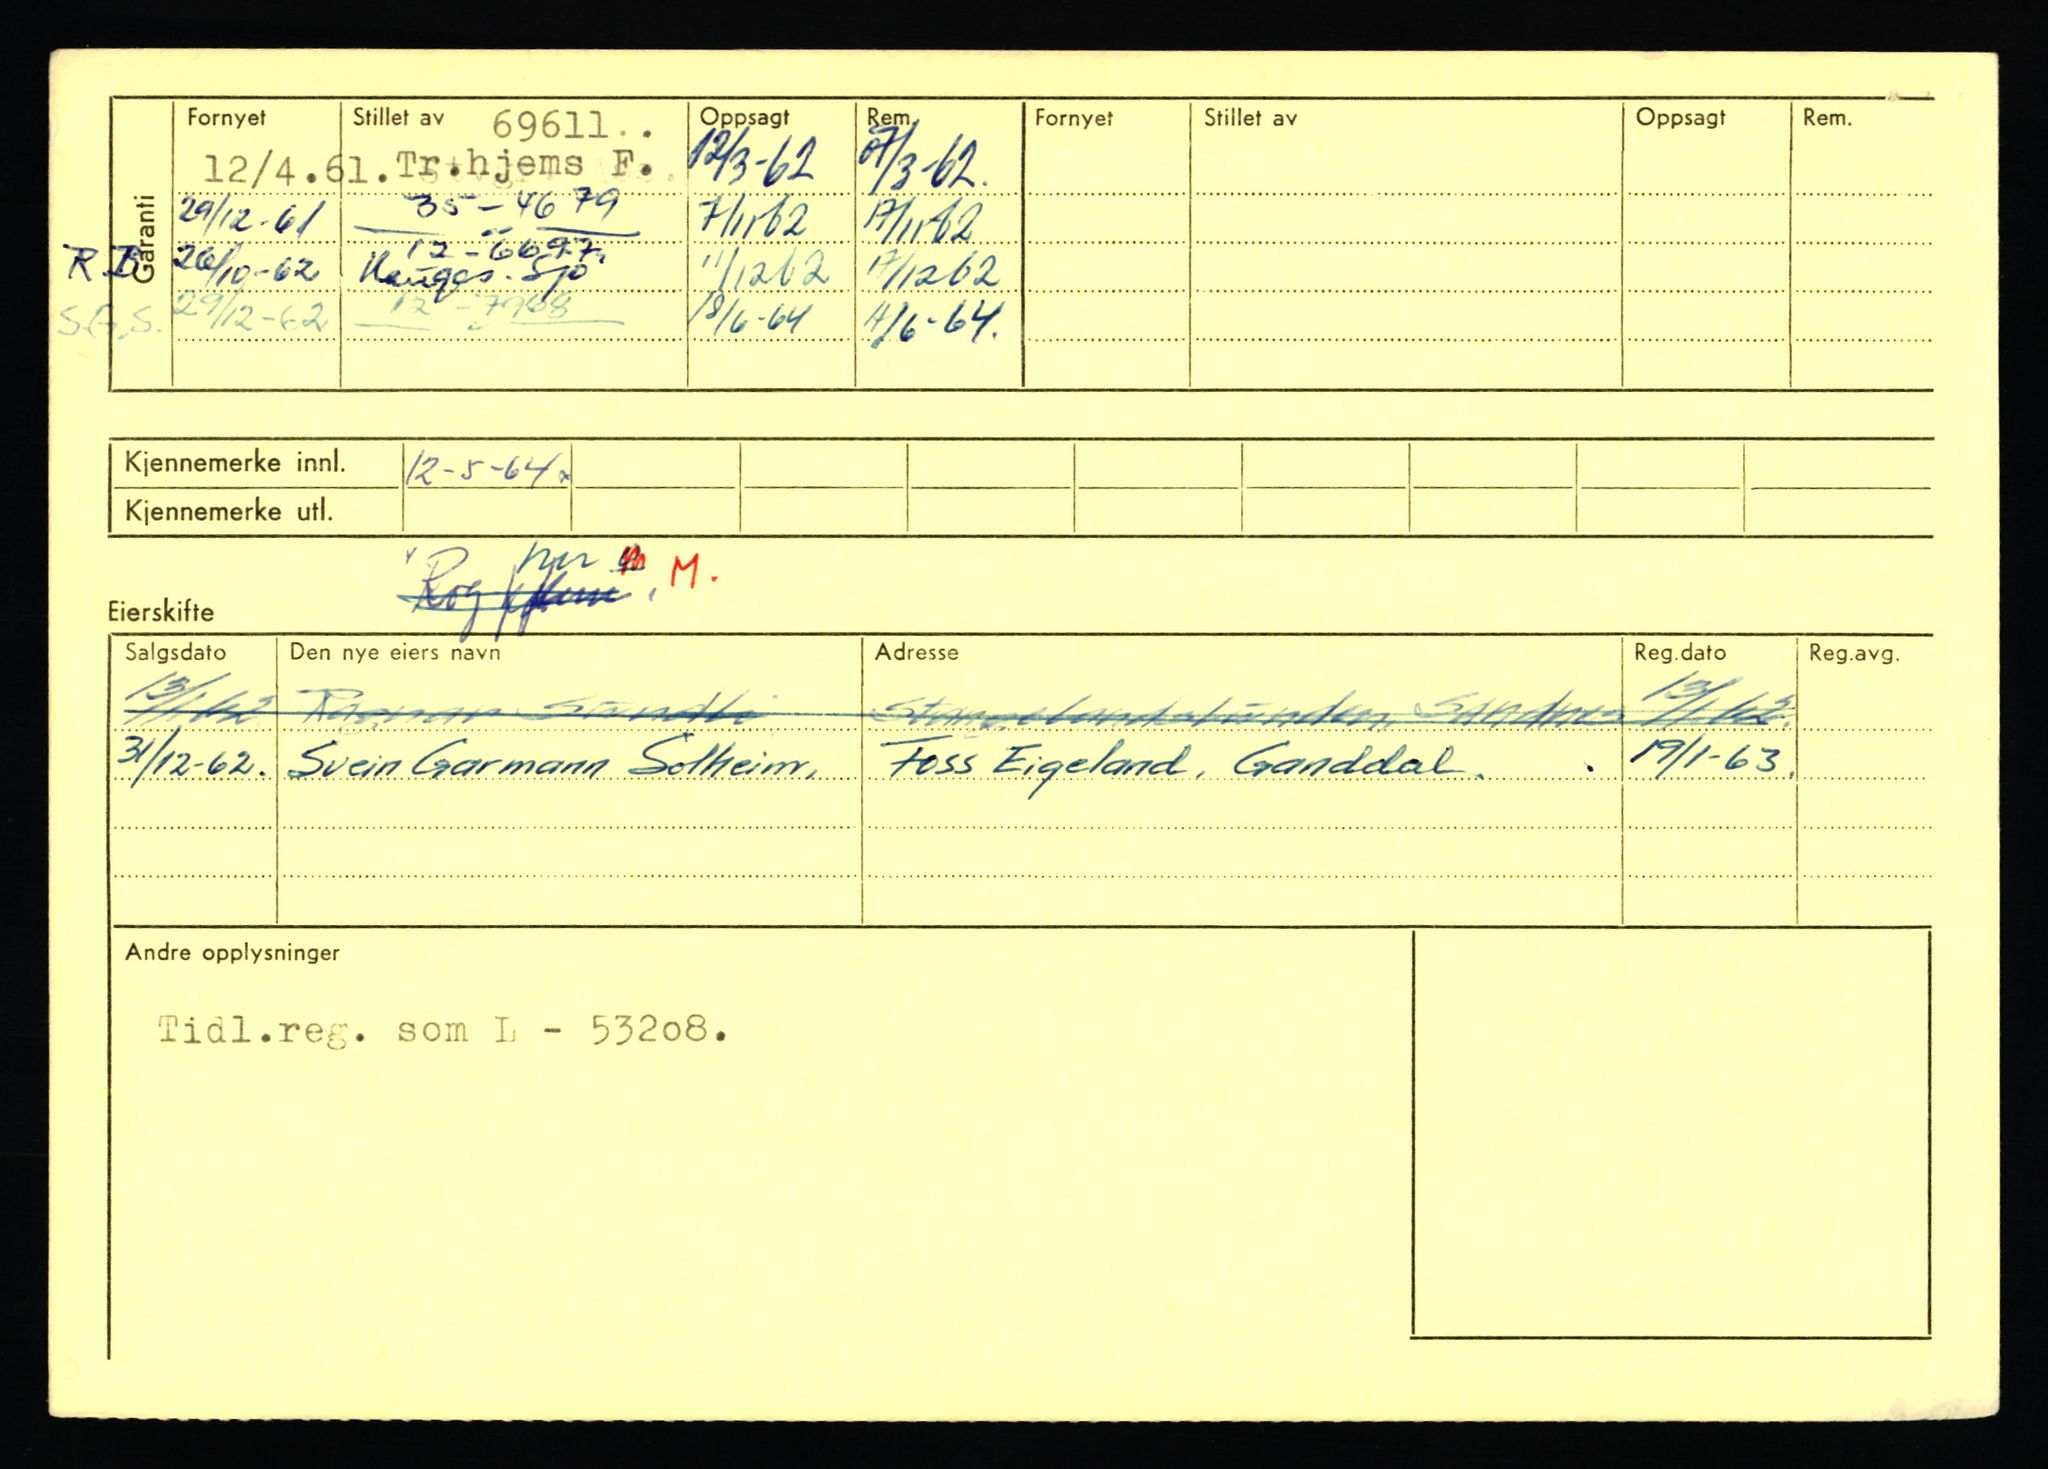 Garanti
Fornyet Stillet av Oppsagt Rem. Fornyet Stillet av Oppsagt Rem.
69611..
12/4.61. Tr.hjems F. 12/3-62 /3-62.
29/12-61 35-4679 7/11-62 17/11-62
12-6697.
R.B. 26/10-62 Hauges. Sjø 11/12 62 17/12 62
S.G.S. 29/12-62 12-7968 18/6-64 /6-64.
Kjennemerke innl. 12-5-64
Kjennemerke utl.
M.
Eierskifte
Salgsdato Den nye eiers navn Adresse Reg.dato Reg.avg.
13/1 62 Ragnar Sandli Stangelandslunden, Sandnes 13/1 62.
31/12-62. Svein Garmann Solheim, Foss Eigeland, Ganddal. 19/1-63.
Andre opplysninger
Tidl.reg. som L - 53208.